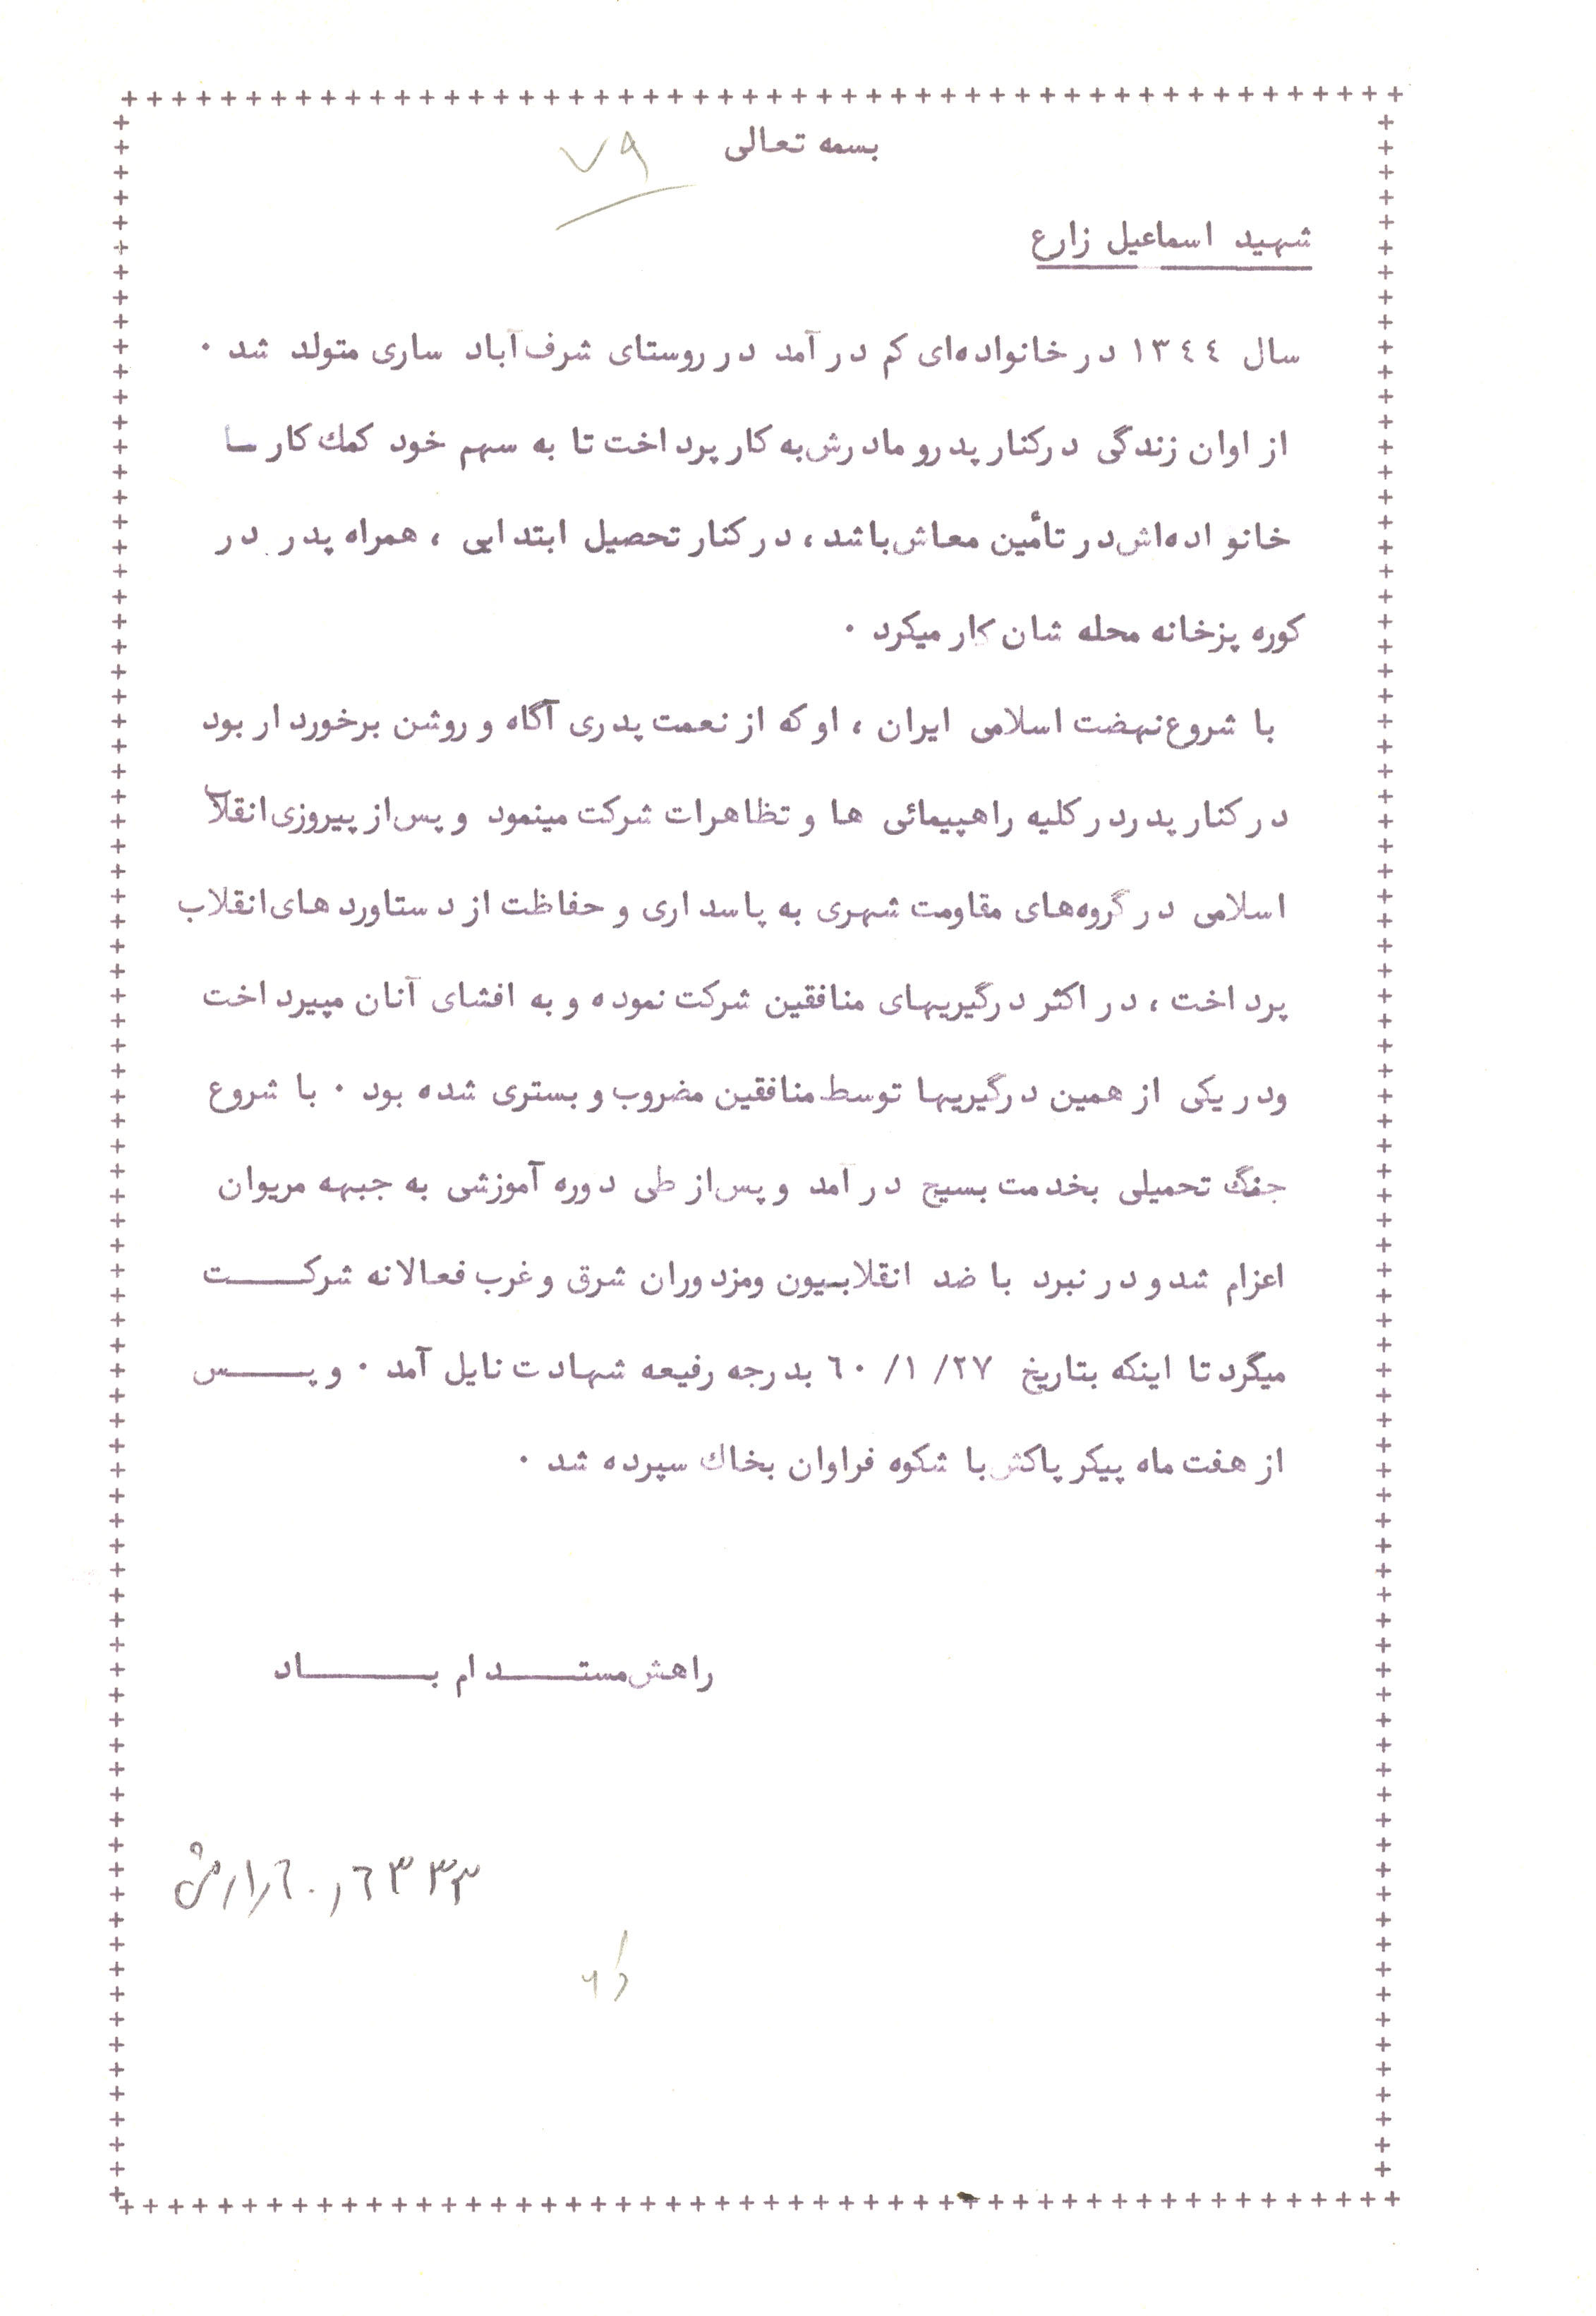 بسمه تعالی
۷۹
شهید اسماعیل زارع
سال ۱۳٤٤ در خانواده‌ای کم در آمد در روستای شرف‌آباد ساری متولد شد ۰
از اوان زندگی درکنار پدرو مادرش به کار پرداخت تا به سهم خود کمك کار سا
خانواده‌اش در تأمین معاش باشد ، در کنار تحصیل ابتدایی ، همراه پدر در
کوره پزخانه محله شان کار میکرد ۰
با شروع نهضت اسلامی ایران ، او که از نعمت پدری آگاه و روشن برخوردار بود
در کنار پدردر کلیه راهپیمائی ها و تظاهرات شرکت مینمود و پس از پیروزی انقلاب
اسلامی در گروه‌های مقاومت شهری به پاسداری و حفاظت از دستاوردهای انقلاب
پرداخت ، در اکثر درگیریهای منافقین شرکت نموده و به افشای آنان میپرداخت
ودر یکی از همین درگیریها توسط منافقین مضروب و بستری شده بود ۰ با شروع
جنگ تحمیلی بخدمت بسیج در آمد و پس از طی دوره آموزشی به جبهه مریوان
اعزام شد و در نبرد با ضد انقلابیون ومزدوران شرق و غرب فعالانه شرکــــت
میگرد تا اینکه بتاریخ ۲۷ /۱ /٦۰ بدرجه رفیعه شهادت نایل آمد ۰ و پــــس
از هفت ماه پیکر پاکش با شکوه فراوان بخاك سپرده شد ۰
راهش مستــــدام بــــــاد